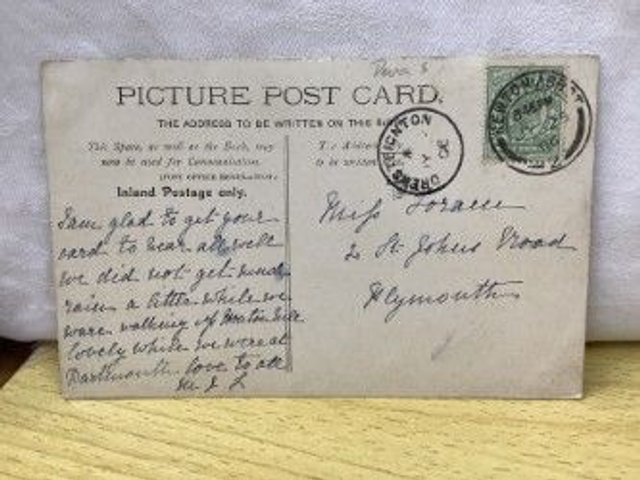 Devon
PICTURE POST CARD.
THE ADDRESS TO BE WRITTEN ON THIS
This Space, as well as the Back, may
now be used for Communication.
(POST OFFICE REGULATION)
Inland Postage only.
to be written
DREWSTEIGNTON
NEWTON ABBOT
I am glad to get your
card to hear all well
we did not get much
rain a little while we
ware walking up
lovely while we were at
Dartmouth love to all
Miss
2 St Johns Road
Plymouth